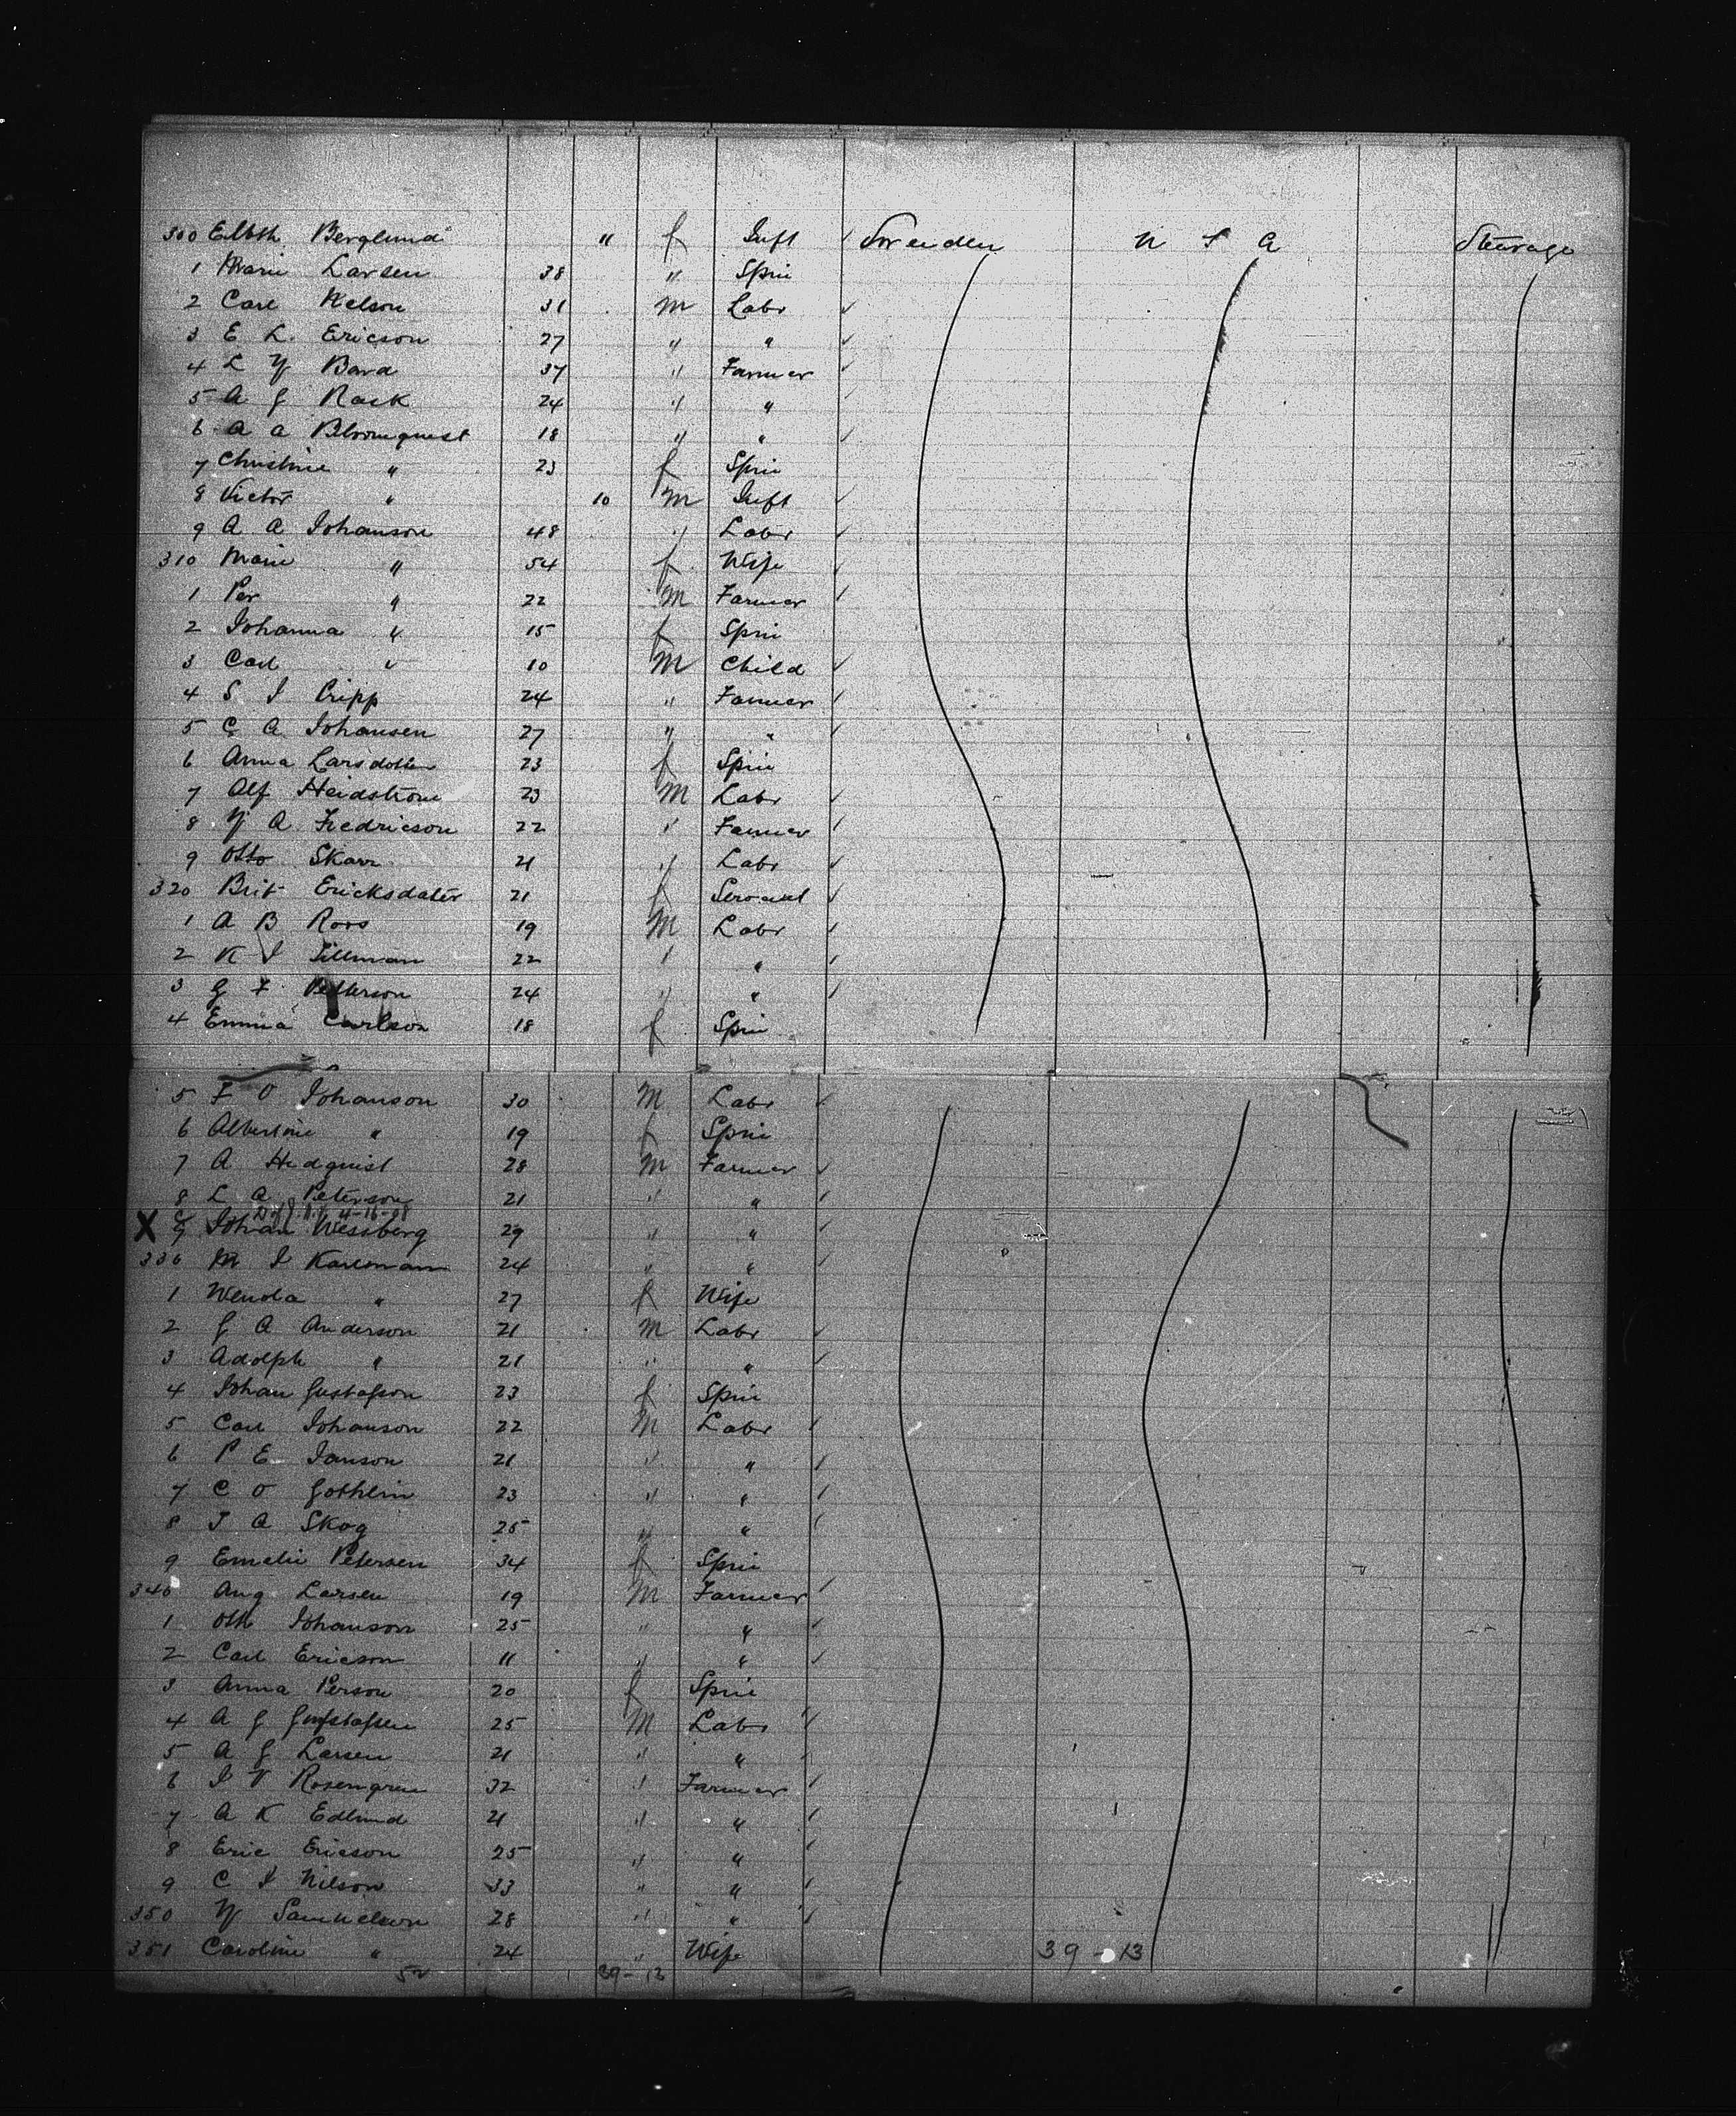 300 Elbth Berglund " f Inft ✓ Sweeden U S A Steerage
1 Marie Larsen 38 " Spin
2 Carl Nelson 31 M Labr ✓
3 E L. Ericson 27 " " ✓
4 L Y Bard 37 " Farmer ✓
5 A G Rack 24 " "
6 A A Bloomquest 18 " " ✓
7 Christine " 23 f Spin
8 Victor " 10 M Inft ✓
9 A A Johanson 48 " Labr ✓
310 Marie " 54 f Wife ✓
1 Per " 22 M Farmer ✓
2 Johanna " 15 f Spin
3 Carl " 10 M Child ✓
4 S J Pripp 24 " Farmer ✓
5 C A Johansen 27 " " ✓
6 Anna Larsdotter 23 f Spin
7 Alf Heidstrom 23 M Labr ✓
8 Y A Fredricson 22 " Farmer ✓
9 Otto Skarr 21 " Labr ✓
320 Brit Ericksdater 21 f Servant ✓
1 A B Roos 19 M Labr ✓
2 K J Tillman 22 " " ✓
3 G F Petterson 24 " " ✓
4 Emma Carlson 18 f Spin
5 F O Johanson 30 M Labr ✓
6 Albertine " 19 f Spin
7 A Hedquist 28 M Farmer ✓
8 L A Peterson 21 " " ✓
4-16-08
X 9 Johan Wessberg 29 " " ✓
330 M J Karlmann 24 " " ✓
1 Wenda " 27 f Wife
2 G A Anderson 21 M Labr ✓
3 Adolph " 21 " " ✓
4 Johan Gustafson 23 f Spin
5 Carl Johanson 22 M Labr ✓
6 P E Janson 21 " " ✓
7 C O Gothlin 23 " " ✓
8 J A Skog 25 " " ✓
9 Emelie Petersen 34 f Spin
340 Aug Larsen 19 M Farmer ✓
1 Oth Johanson 25 " " ✓
2 Carl Ericson 11 " " ✓
3 Anna Person 20 f Spin
4 A G Gustafsen 25 M Labr ✓
5 A G Larsen 21 " " ✓
6 J V Rosengren 32 " Farmer ✓
7 A K Edlund 21 " " ✓
8 Eric Ericson 25 " " ✓
9 C J Nilson 33 " " ✓
350 Y Samuelson 28 " " ✓
351 Caroline " 24 " Wife 39-13
52 39-13